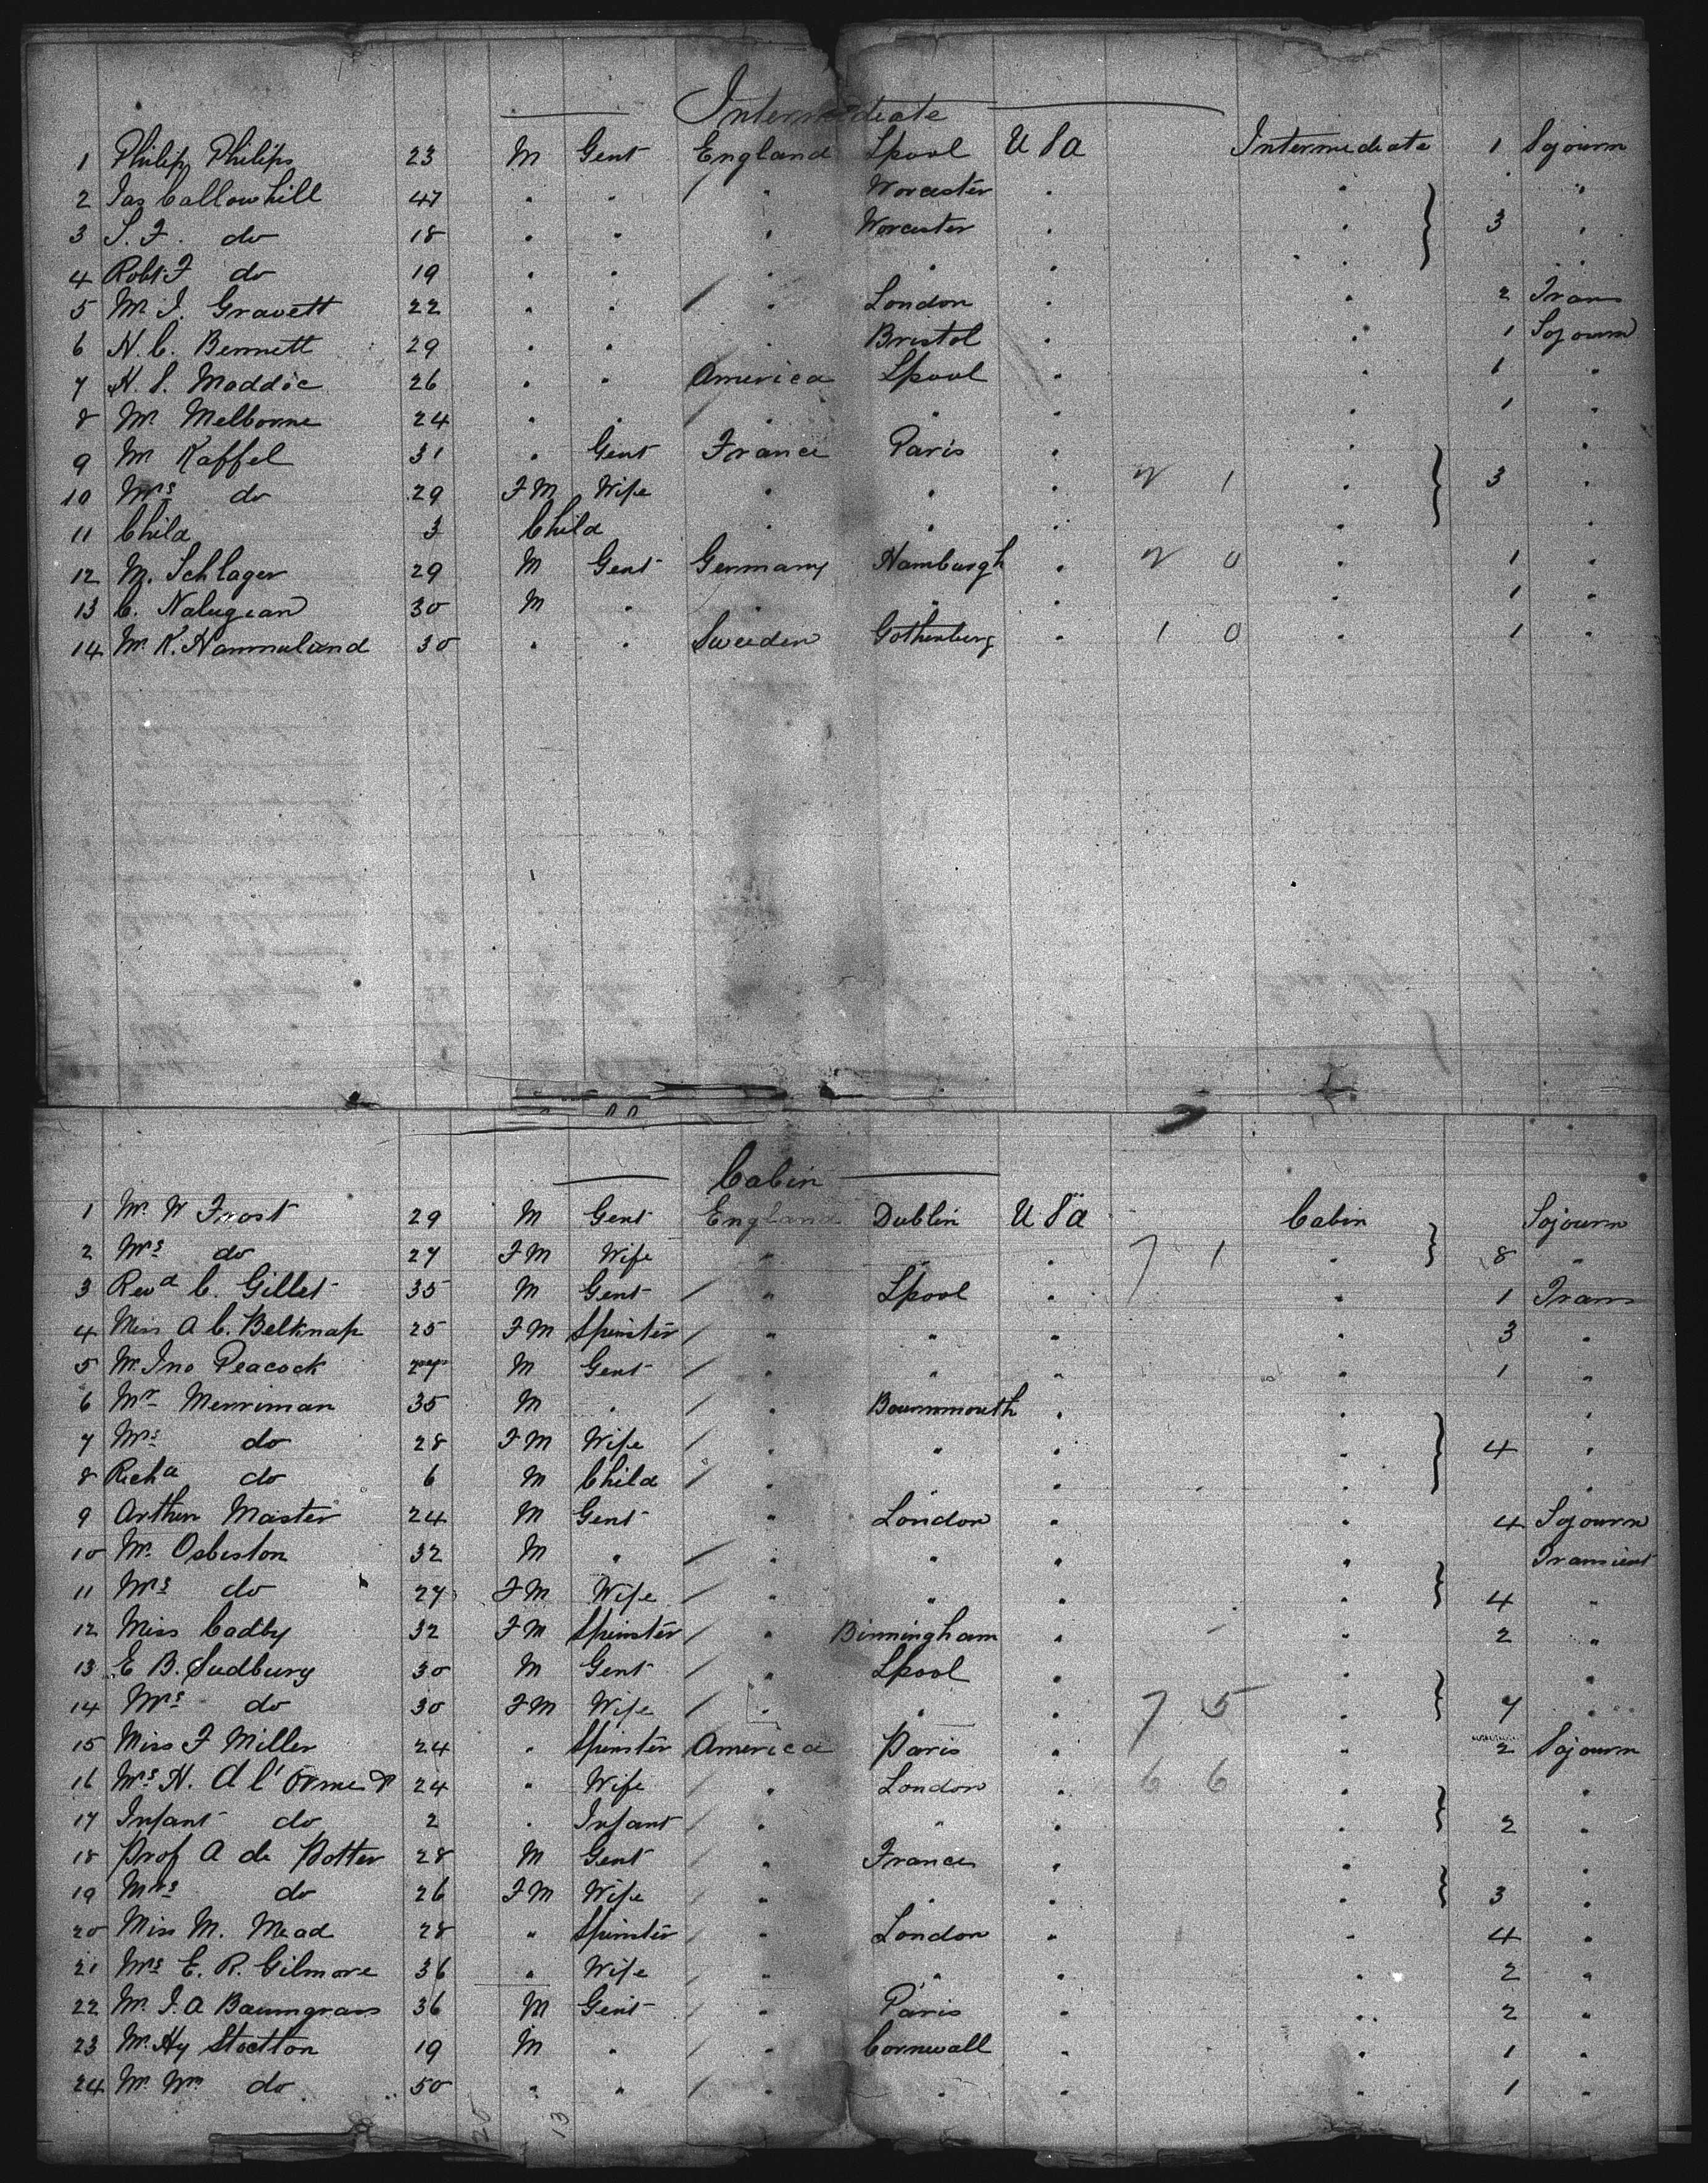 Intermediate
1 Philip Philips 23 M Gent England Lpool U S A Intermediate 1 Sojourn
2 Jas Callowhill 47 " " / " Worcester " " "
3 S. F. do 18 " " " Worcester " " } 3 "
4 Robt F do 19 " " " " " " "
5 Mr J. Gravett 22 " " / " London " " 2 Trans
6 H. C. Bennett 29 " " " Bristol " " 1 Sojourn
7 H. S. Maddoc 26 " " America Lpool " " 1 "
8 Mr Melborne 24 " " / " " " " 1 "
9 M Kaffel 31 " Gent France Paris " " "
10 Mrs do 29 F M Wife " " " 2 1 " } 3 "
11 Child 3 Child " " " " "
12 M. Schlager 29 M Gent Germany Hamburgh " 2 0 " 1 "
13 C. Nalugean 30 M " " " " " 1 "
14 Mr K. Hammuland 30 " " Sweeden Gothenburg " 1 0 " 1 "
Cabin
1 Mr W Frost 29 M Gent England Dublin U S A Cabin Sojourn
2 Mrs do 27 F M Wife " " " 7 1 " } 8 "
3 Revd C. Gillet 35 M Gent / " Lpool " " 1 Trans
4 Miss A C. Belknap 25 F M Spinster / " " " " 3 "
5 Mr Jno Peacock 27 M Gent / " " " " 1 "
6 Mr Merriman 35 M " / " Bournmouth " " "
7 Mrs do 28 F M Wife / " " " " } 4 "
8 Richd do 6 M Child / " " " " "
9 Arthur Master 24 M Gent " London " " 4 Sojourn
10 Mr Osbeston 32 M " / " " " " Transient
11 Mrs do 27 F M Wife / " " " " } 4 "
12 Miss Cadby 32 F M Spinster / " Birmingham " " 2 "
13 E B. Sudbury 30 M Gent / " Lpool " " "
14 Mrs do 30 F M Wife / " " " 7 5 " } 7 "
15 Miss F Miller 24 " Spinster America Paris " " 2 Sojourn
16 Mrs H. A l'Orme 24 " Wife / " London " 6 6 " "
17 Infant do 2 " Infant / " " " " } 2 "
18 Prof A de Potter 28 M Gent " France " " "
19 Mrs do 26 F M Wife / " " " " } 3 "
20 Miss M. Mead 28 " Spinster / " London " " 4 "
21 Mrs E. R. Gilmore 36 " Wife / " " " " 2 "
22 Mr J. A Baumgrass 36 M Gent / " Paris " " 2 "
23 Mr Hy Stockton 19 M " / " Cornwall " " 1 "
24 Mr Wm do 50 " " / " " " " 1 "
25 13